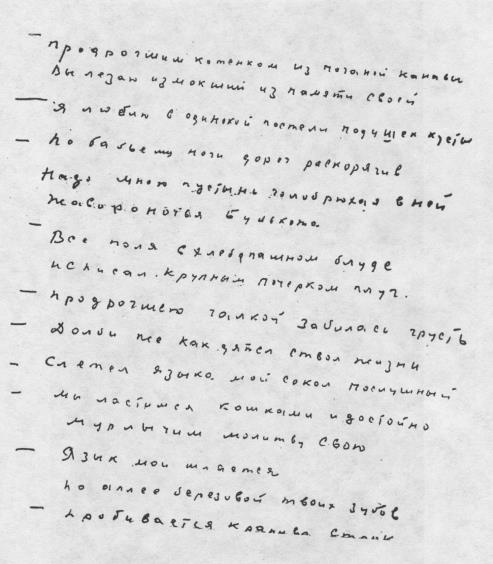 — продрогшим котенком из поганой канавы
Вылезаю измокший из памяти своей
— Я люблю в одинокой постели подушек кусты
— по бабьему ноги дорог раскорячив
Надо мною пустынь голобрюхая в ней
жаворонотья Булькота
— Все поля в хлебопашном блуде
исписал крупным почерком плуг.
— продрогшею галкой забилась грусть
— Долби же как дятел ствол жизни
— Слетел языка мой сокол послушный
— мы ластимся кошками и достойно
мурлычим молитву свою
— Язык мой шляется
по аллее березовой твоих зубов
— пробивается крапива